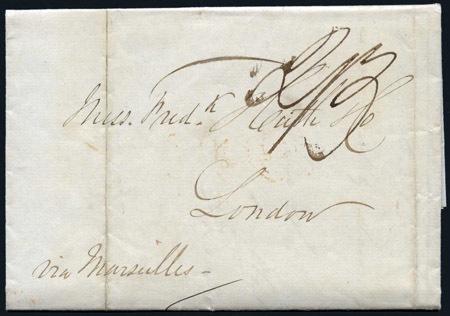 2/3
Messrs. Fredk Huth & Co
London
via Marseilles